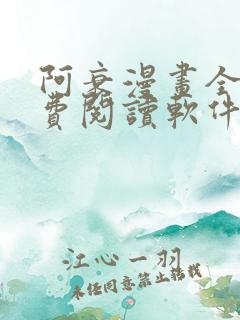 阿衰漫畫全
費閱讀軟件
江心一羽
未經同意禁止搭載